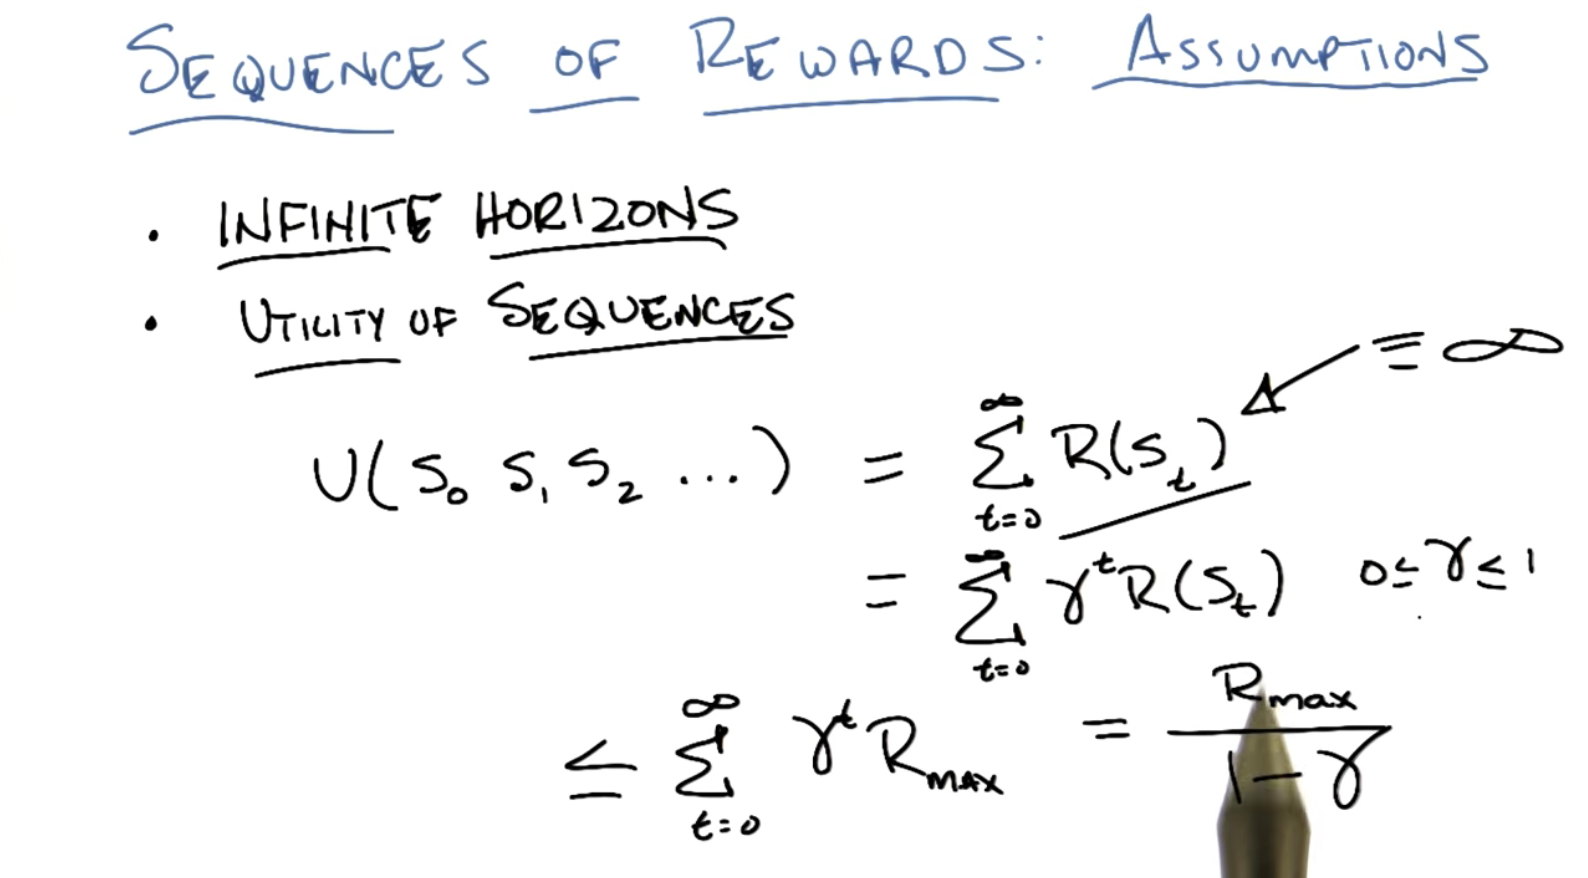 SEQUENCES OF REWARDS: ASSUMPTIONS
• INFINITE HORIZONS
• UTILITY OF SEQUENCES
≡ ∞
U(S₀ S₁ S₂ ...) = ∑_{t=0}^{∞} R(S_t)
= ∑_{t=0}^{∞} γ^t R(S_t) 0 ≤ γ ≤ 1
≤ ∑_{t=0}^{∞} γ^t R_MAX = R_max / (1 - γ)